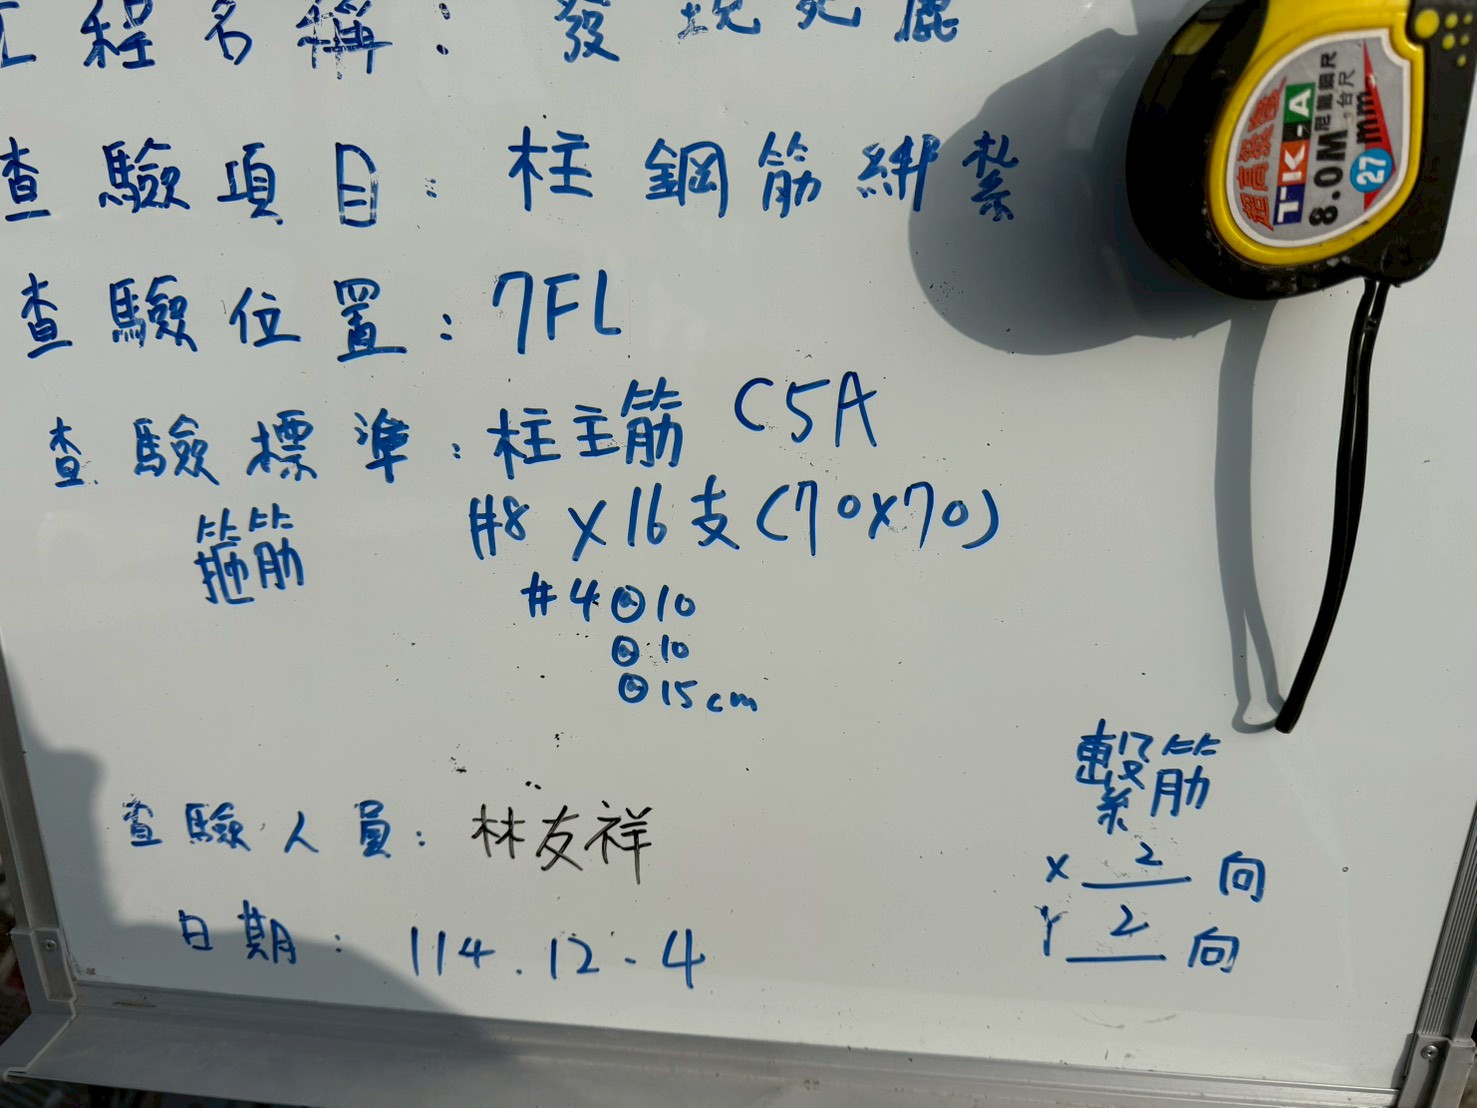 工程名稱：發現兇鹿
查驗項目：柱鋼筋綁紮
查驗位置：7FL
查驗標準：柱主筋 C5A
#8 X 16支(70X70)
箍筋
#4@10
@10
@15cm
繫筋
X 2 向
Y 2 向
查驗人員：林友祥
日期：114.12.4
超高級
TKLA
8.0M
尼龍鋼尺
台尺
27mm